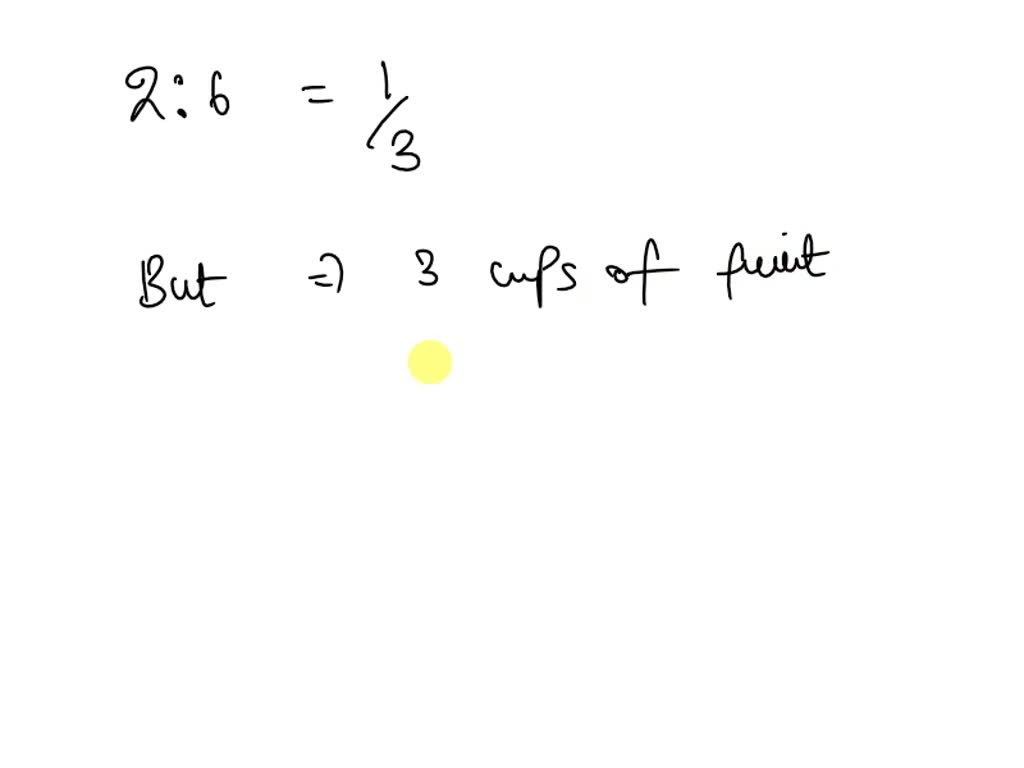 2:6 = 1/3
But ⇒ 3 cups of fruit